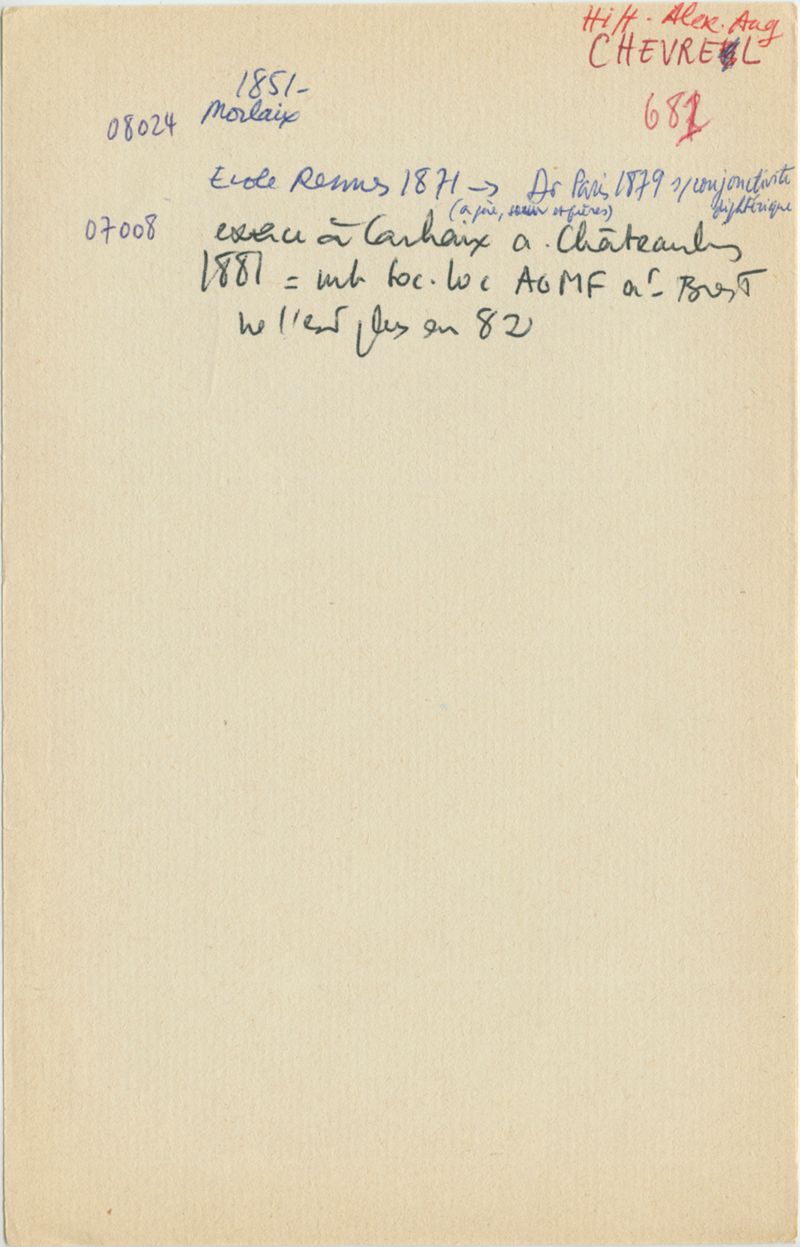 Hip. Alex. Aug
CHEVREL
681
1851-
08024 Morlaix
Ecole Rennes 1871 → Dr Paris 1879 s/conjonctivite
(à père, soeur et frères) diphtérique
07008 exerce à Carhaix a. Châteaulin
1881 = mb Soc. loc AGMF arr Brest
ne l'est plus en 82